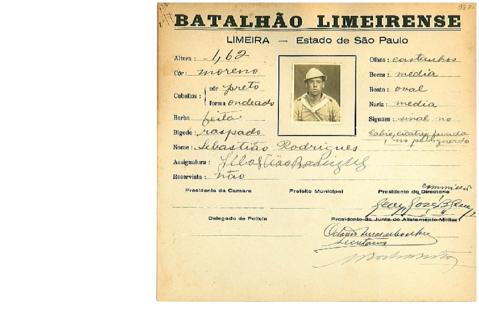 BATALHÃO LIMEIRENSE
LIMEIRA — Estado de São Paulo
Altura: 1,62
Olhos: castanhos
Côr: moreno
Bocca: media
Cabellos: côr preto
Rosto: oval
forma ondeado
Nariz: media
Barba: feita
Signaes: sinal no
Bigode: raspado
labio, cicatriz
Nome: Sebastião Rodrigues
Assignatura: Sebastião Rodrigues
Reservista: não
Presidente da Camara
Prefeito Municipal
Presidente do Directorio
Delegado de Policia
Presidente da Junta de Alistamento Militar